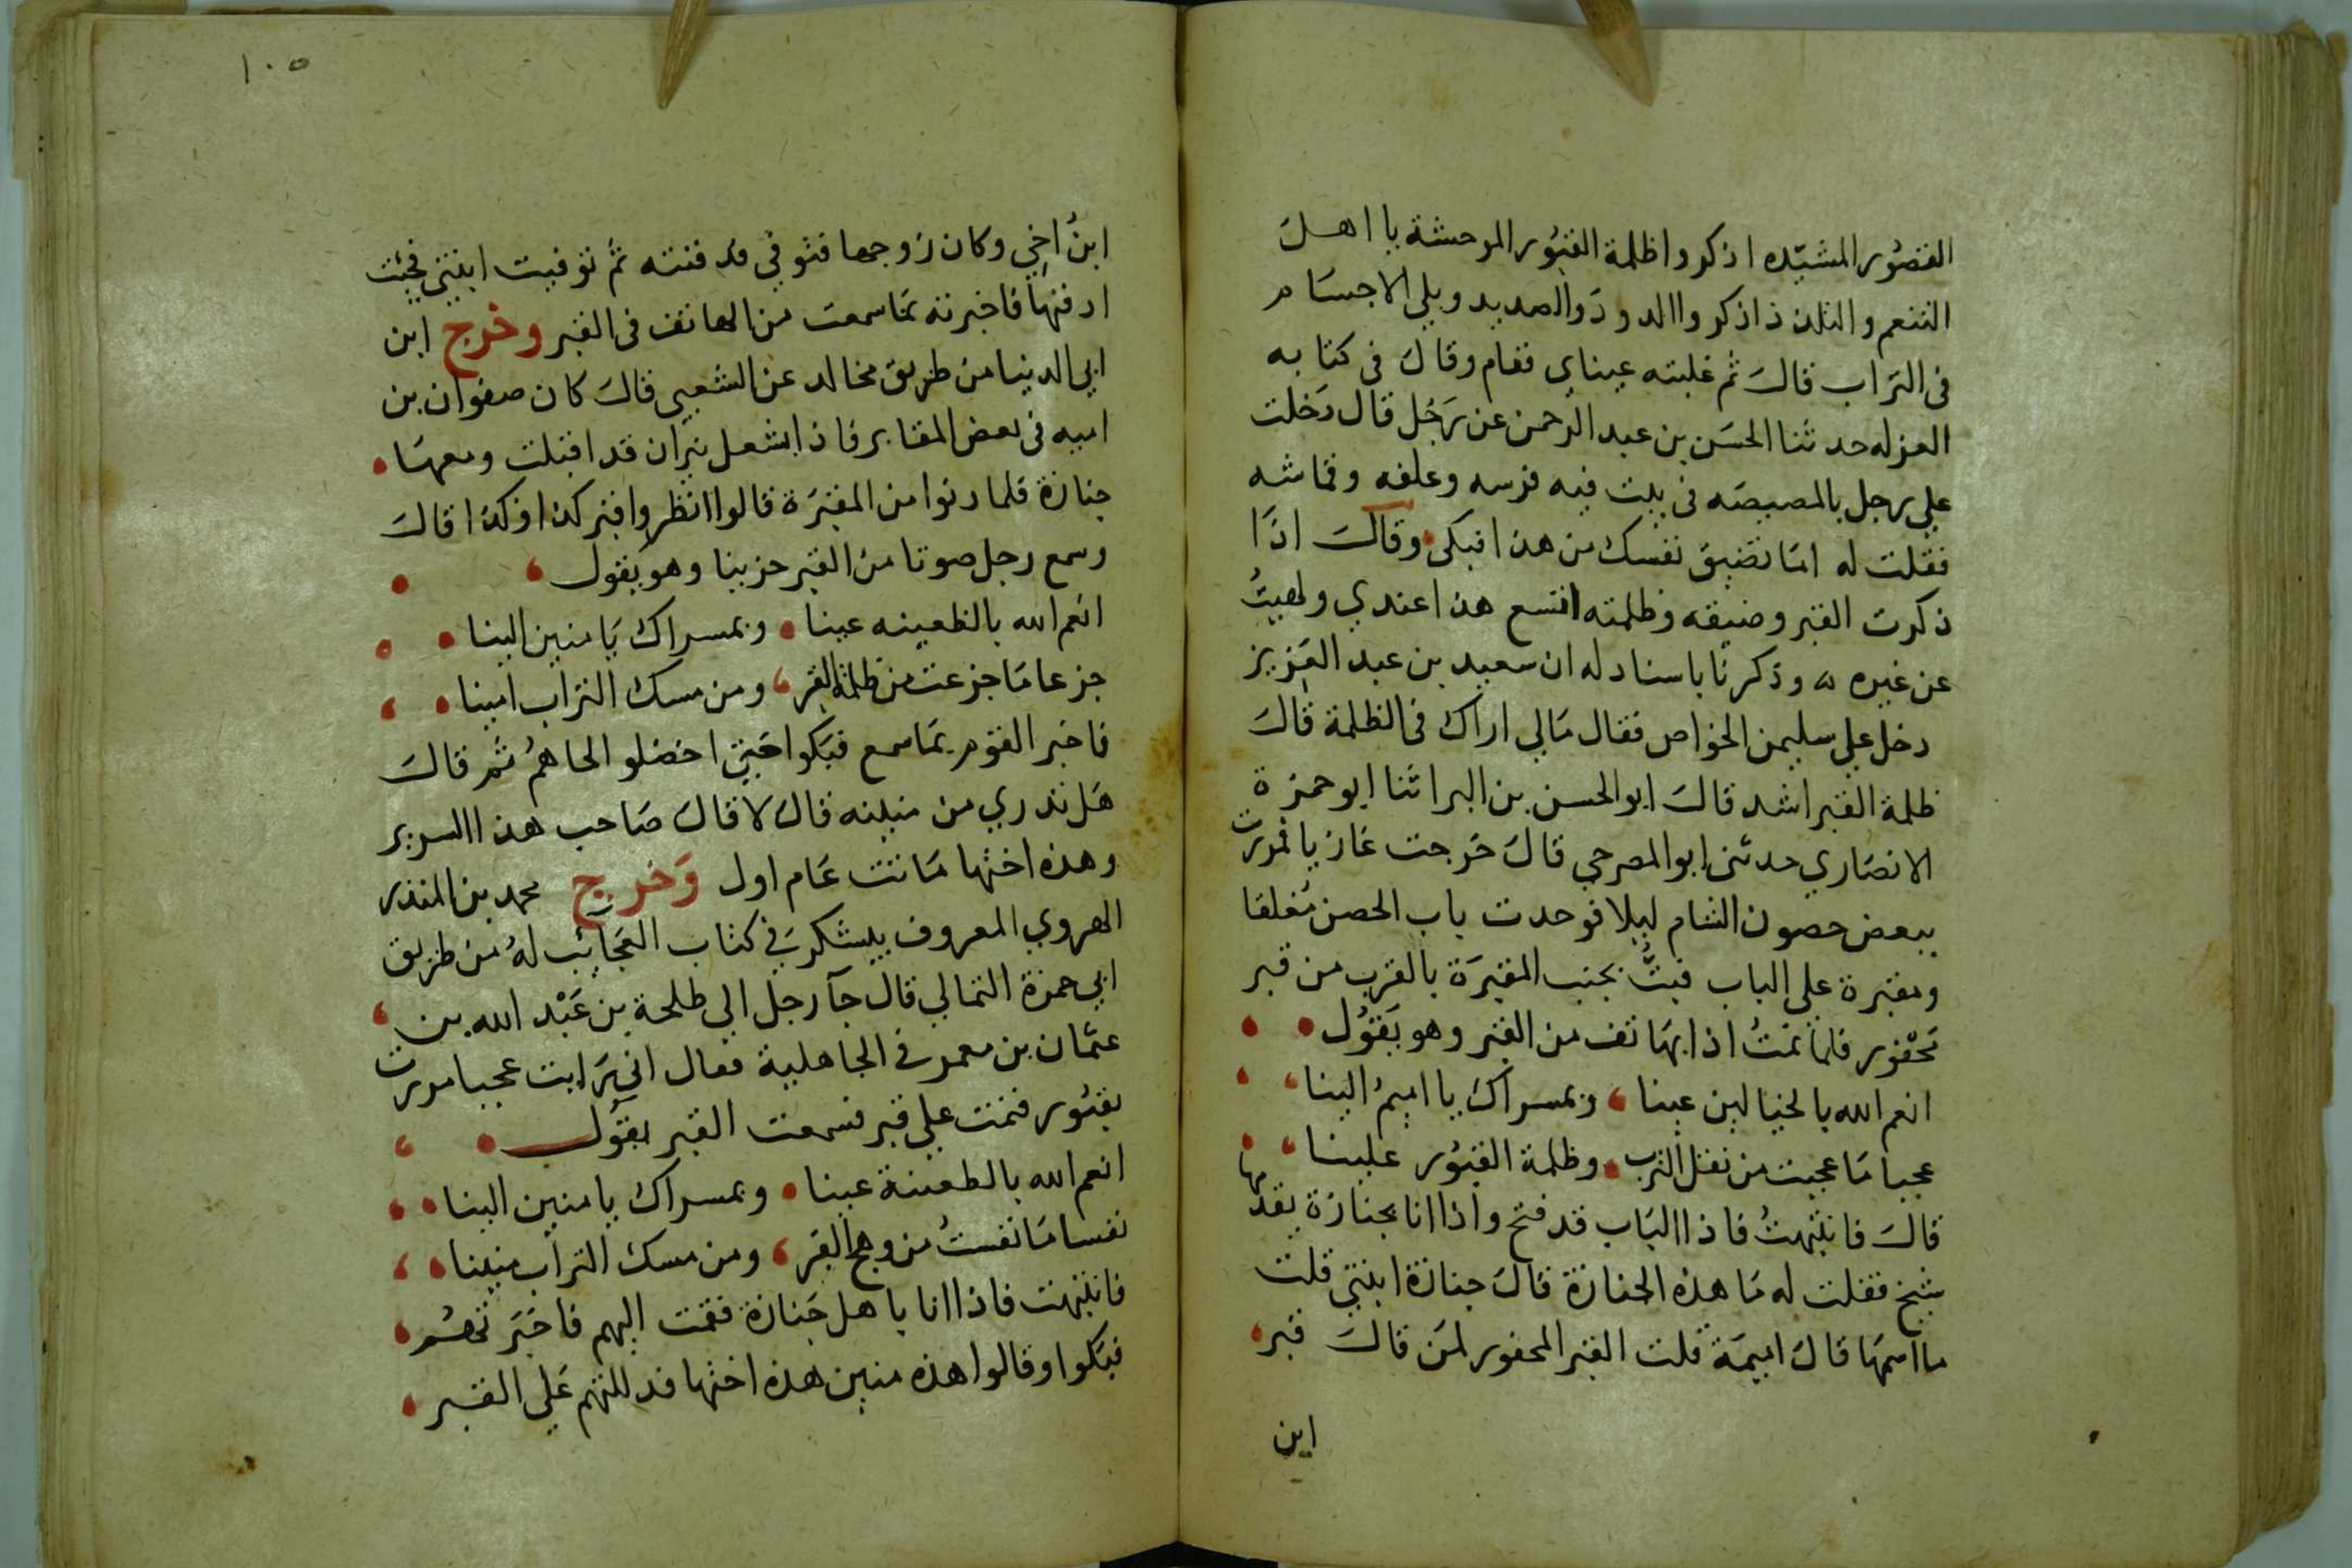 القصُور المشيّده اذكروا ظلمة القبُور الموحشة يا اهل
التنعم والتلذذ اذكروا الدود والصديد وبلي الاجسام
في التراب قال ثم غلبته عيناي فقام وقال في كتابه
العزله حدثنا الحسن بن عبد الرحمن عن رجل قال دخلت
علي رجل بالمصيصه في بيت فيه فرسه وعلفه وقماشه
فقلت له اما تضيق نفسك من هذا فبكى وقال اذا
ذكرت القبر وضيقه وظلمته اتسع هذا عندي ولهيتُ
عن غيره وذكر نا باسناد له ان سعيد بن عبد العزيز
دخل علي سليمن الخواص فقال مالي اراك في الظلمة قال
ظلمة القبر اشد قال ابو الحسن بن البرا ثنا ابو حمزة
الانصاري حدثني ابو المصرحي قال خرجت غازيا فمررت
ببعض حصون الشام ليلا فوجدت باب الحصن مغلقا
ومقبرة على الباب فبتُّ بجنب المقبرة بالقرب من قبر
محفور فلما نمتُ اذا بهاتف من القبر وهو يقول
انعم الله بالخيالين عينا وبمسراك يا اميمُ الينا
عجبا ما عجبت من ثقل الترب وظلمة القبُور علينا
قال فانتبهتُ فاذا الباب قد فتح واذا انا بجنازة يقدمها
شيخ فقلت له ما هذه الجنازة قال جنازة ابنتي قلت
ما اسمها قال اميمة قلت القبر المحفور لمن قال قبر
ابن
١٠٥
ابنُ اخي وكان زوجها فتوفي فدفنته ثم توفيت ابنتي فجئت
ادفنها فاخبرته بما سمعت من الهاتف في القبر وخرج ابن
ابي الدنيا من طريق مخالد عن الشعبي قال كان صفوان بن
اميه في بعض المقابر فاذا بشعل نيران قد اقبلت ومعها
جنازة فلما دنوا من المقبرة قالوا انظروا قبر كذا وكذا قال
وسمع رجل صوتا من القبر حزينا وهو يقول
انعم الله بالظعينه عينا وبمسراك يا منين الينا
جزعا ما جزعت من ظلمة القبر ومن مسك التراب امينا
فاخبر القوم بما سمع فبكوا حتي اخضلو الحاهمُ ثم قال
هل تدري من منينه قال لا قال صاحب هذا السرير
وهذه اختها ماتت عام اول وخرج محمد بن المنذر
الهروي المعروف بيشكر في كتاب العجائب له من طريق
ابي حمزة الثمالي قال جآ رجل الي طلحة بن عَبْد الله بن
عثمان بن معمر في الجاهلية فقال اني رايت عجبا مررت
بقبُور فنمت علي قبر فسمعت القبر يقول
انعم الله بالطعينة عينا وبمسراك يا منين الينا
نفسا ما نفستُ من وهج القبر ومن مسك التراب منينا
فانتبهت فاذا انا باهل جنازة فقمت اليهم فاخبرتهم
فبكوا وقالوا هذه منين هذه اختها فدللتهم علي القبر